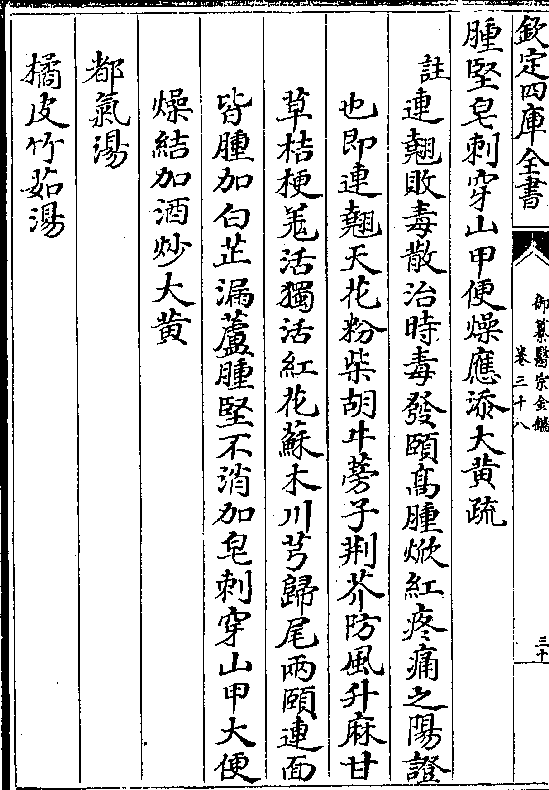 欽定四庫全書
御纂醫宗金鑑
卷三十八
三十
腫堅皂刺穿山甲便燥應添大黄疏
註連翹敗毒散治時毒發頤高腫焮紅疼痛之陽證
也即連翹天花粉柴胡牛蒡子荆芥防風升麻甘
草桔梗羌活獨活紅花蘇木川芎歸尾兩頤連面
皆腫加白芷漏蘆腫堅不消加皂刺穿山甲大便
燥結加酒炒大黄
都氣湯
橘皮竹茹湯